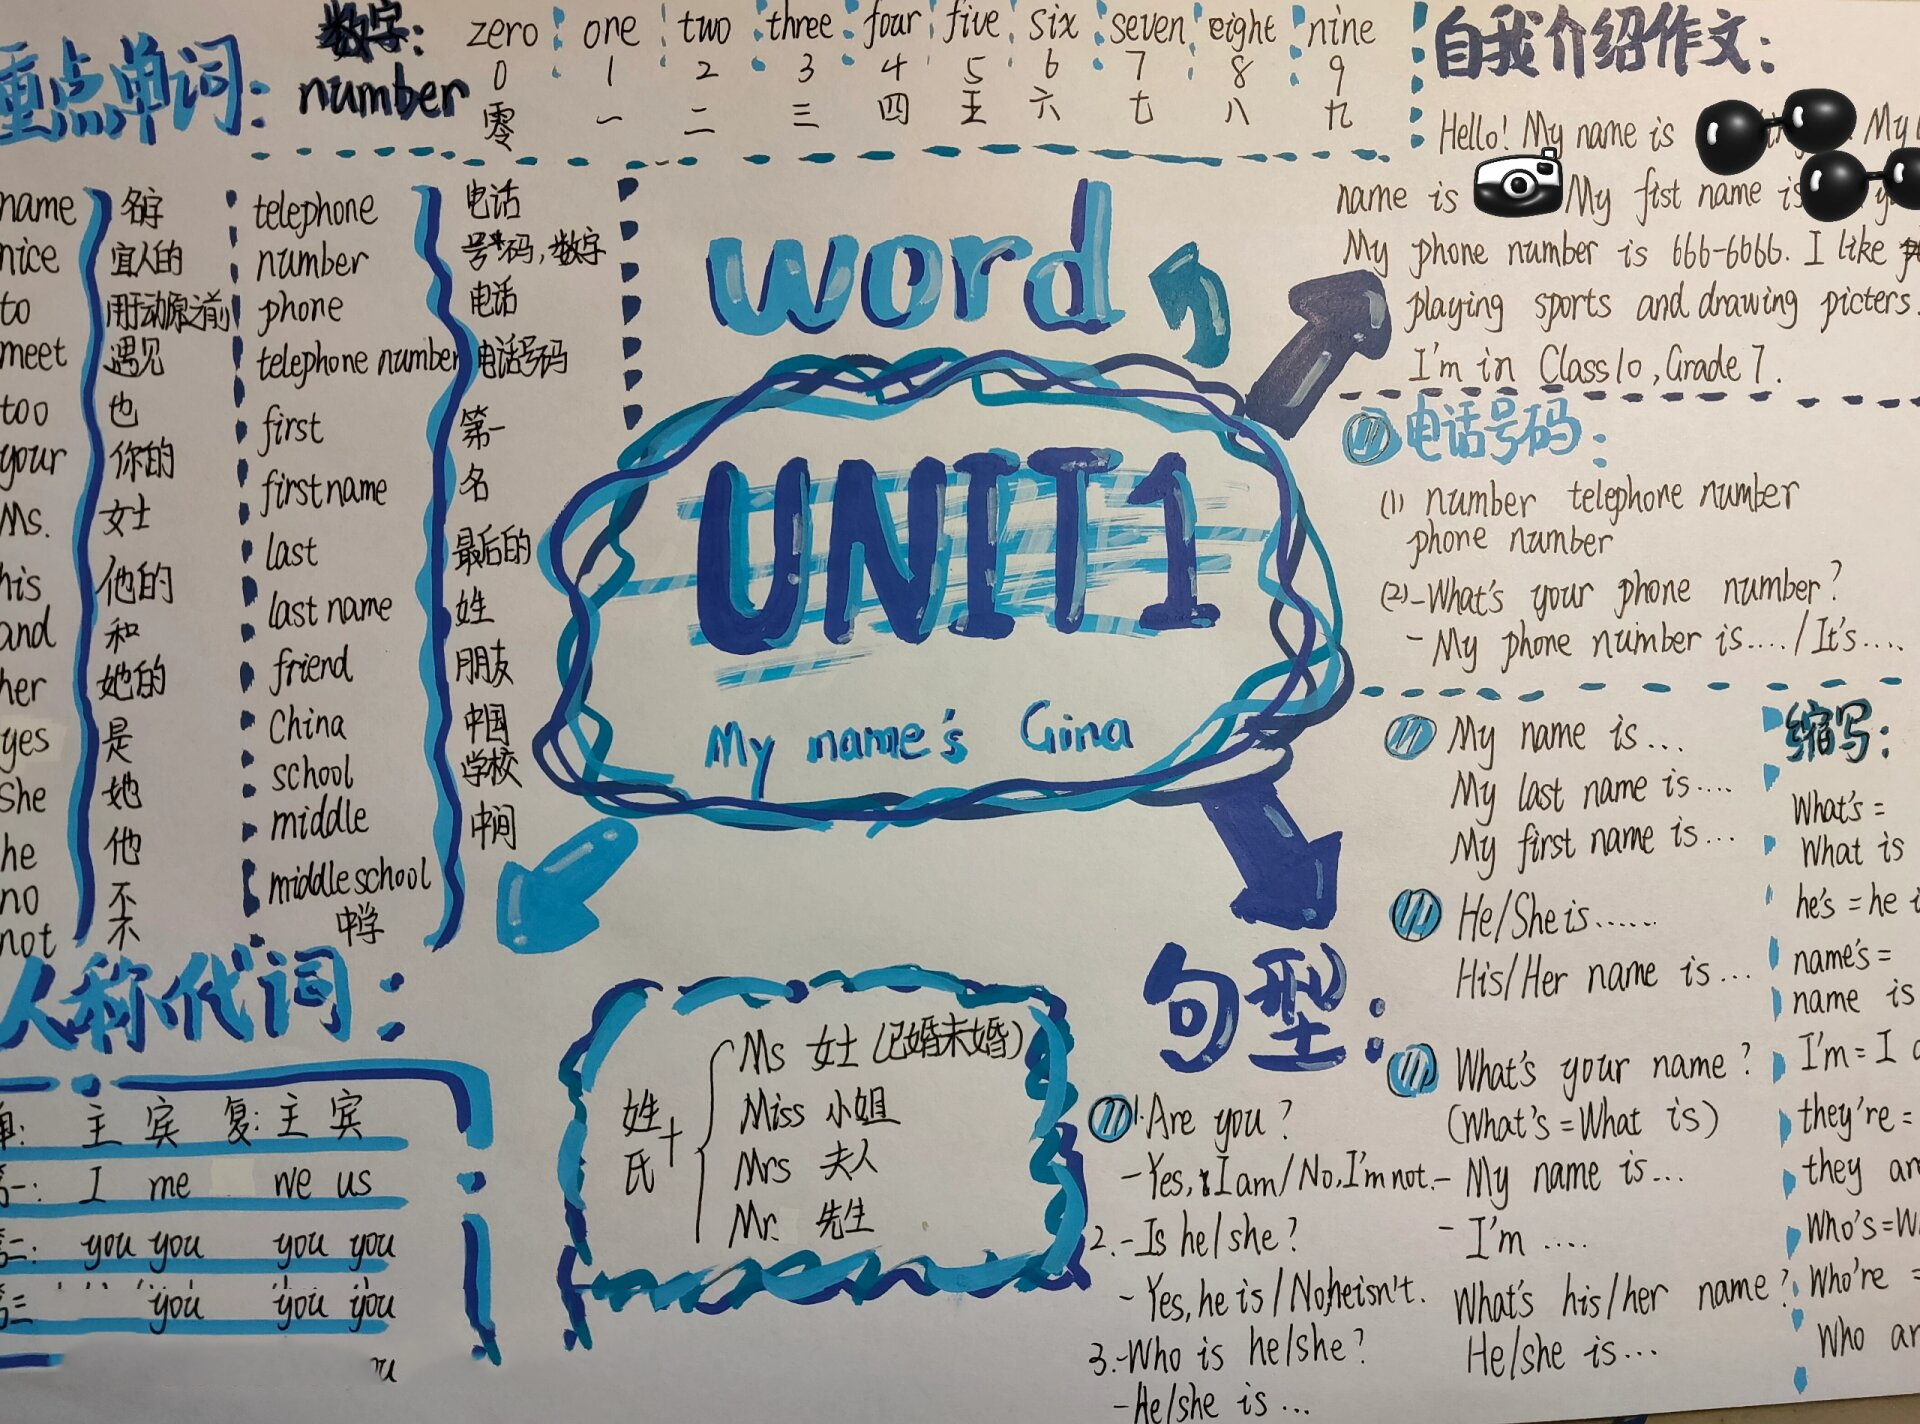 重点单词:
数字:
number
zero one two three four five six seven eight nine
0 1 2 3 4 5 6 7 8 9
零 一 二 三 四 五 六 七 八 九
name 名字
nice 宜人的
to 用于动原之前
meet 遇见
too 也
your 你的
Ms. 女士
his 他的
and 和
her 她的
yes 是
she 她
he 他
no 不
not 不
telephone 电话
number 号码,数字
phone 电话
telephone number 电话号码
first 第一
first name 名
last 最后的
last name 姓
friend 朋友
China 中国
school 学校
middle 中间
middle school
中学
word
UNIT1
My name's Gina
自我介绍作文:
Hello! My name is My
name is My fist name is
My phone number is 666-6066. I like
playing sports and drawing picters.
I'm in Class10, Grade 7.
电话号码:
(1) number telephone number
phone number
(2)-What's your phone number?
- My phone number is..../It's....
My name is...
My last name is....
My first name is...
He/She is......
His/Her name is...
What's your name?
(What's=What is)
- My name is...
- I'm ....
What's his/her name?
He/she is...
缩写:
What's =
What is
he's = he
name's =
name is
I'm = I
they're =
they
Who's=
Who're =
Who
句型:
1.Are you?
-Yes, I am/No, I'm not.
2.-Is he/she?
-Yes, he is/No, he isn't.
3.-Who is he/she?
-He/she is ...
人称代词:
单: 主 宾 复: 主 宾
第一: I me we us
第二: you you you you
第三 you you you
姓氏+
Ms 女士(已婚未婚)
Miss 小姐
Mrs 夫人
Mr. 先生